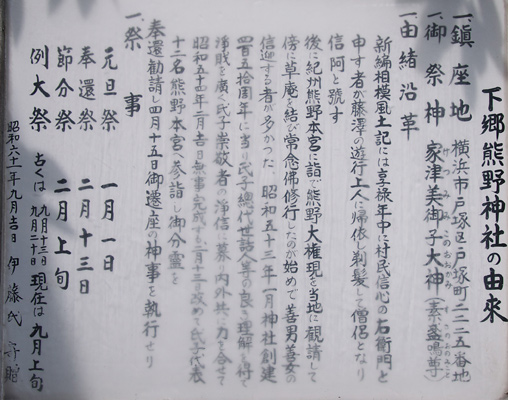 下郷熊野神社の由来
一、鎮座地 横浜市戸塚区戸塚町二二三五番地
一、御祭神 家津美御子大神(素盞鳴尊)
一、由緒沿革
新編相模風土記には享禄年中に村民信心の右衛門と
申す者が藤澤の遊行上人に帰依し剃髪して僧侶となり
信阿と號す
後に紀州熊野本宮に詣で熊野大権現を当地に観請して
傍に草庵を結び常念佛修行したのが始めで善男善女の
信迎する者が多かった 昭和五十三年一月神社創建
四百五拾周年に当り氏子総代世話人等の良き理解を得て
浄財を廣く氏子崇敬者の浄信に募り内外共に力を合せて
昭和五十四年二月吉日無事完成する二月十三日改めて氏子代表
十二名熊野本宮へ参詣し御分霊を
奉還勧請し四月十五日御遷座の神事を執行せり
一、祭事
元旦祭 一月一日
奉還祭 二月十三日
節分祭 二月上旬
例大祭 古くは 九月十三日 九月二十日 現在は九月上旬
昭和六十一年九月吉日 伊藤氏 寄贈